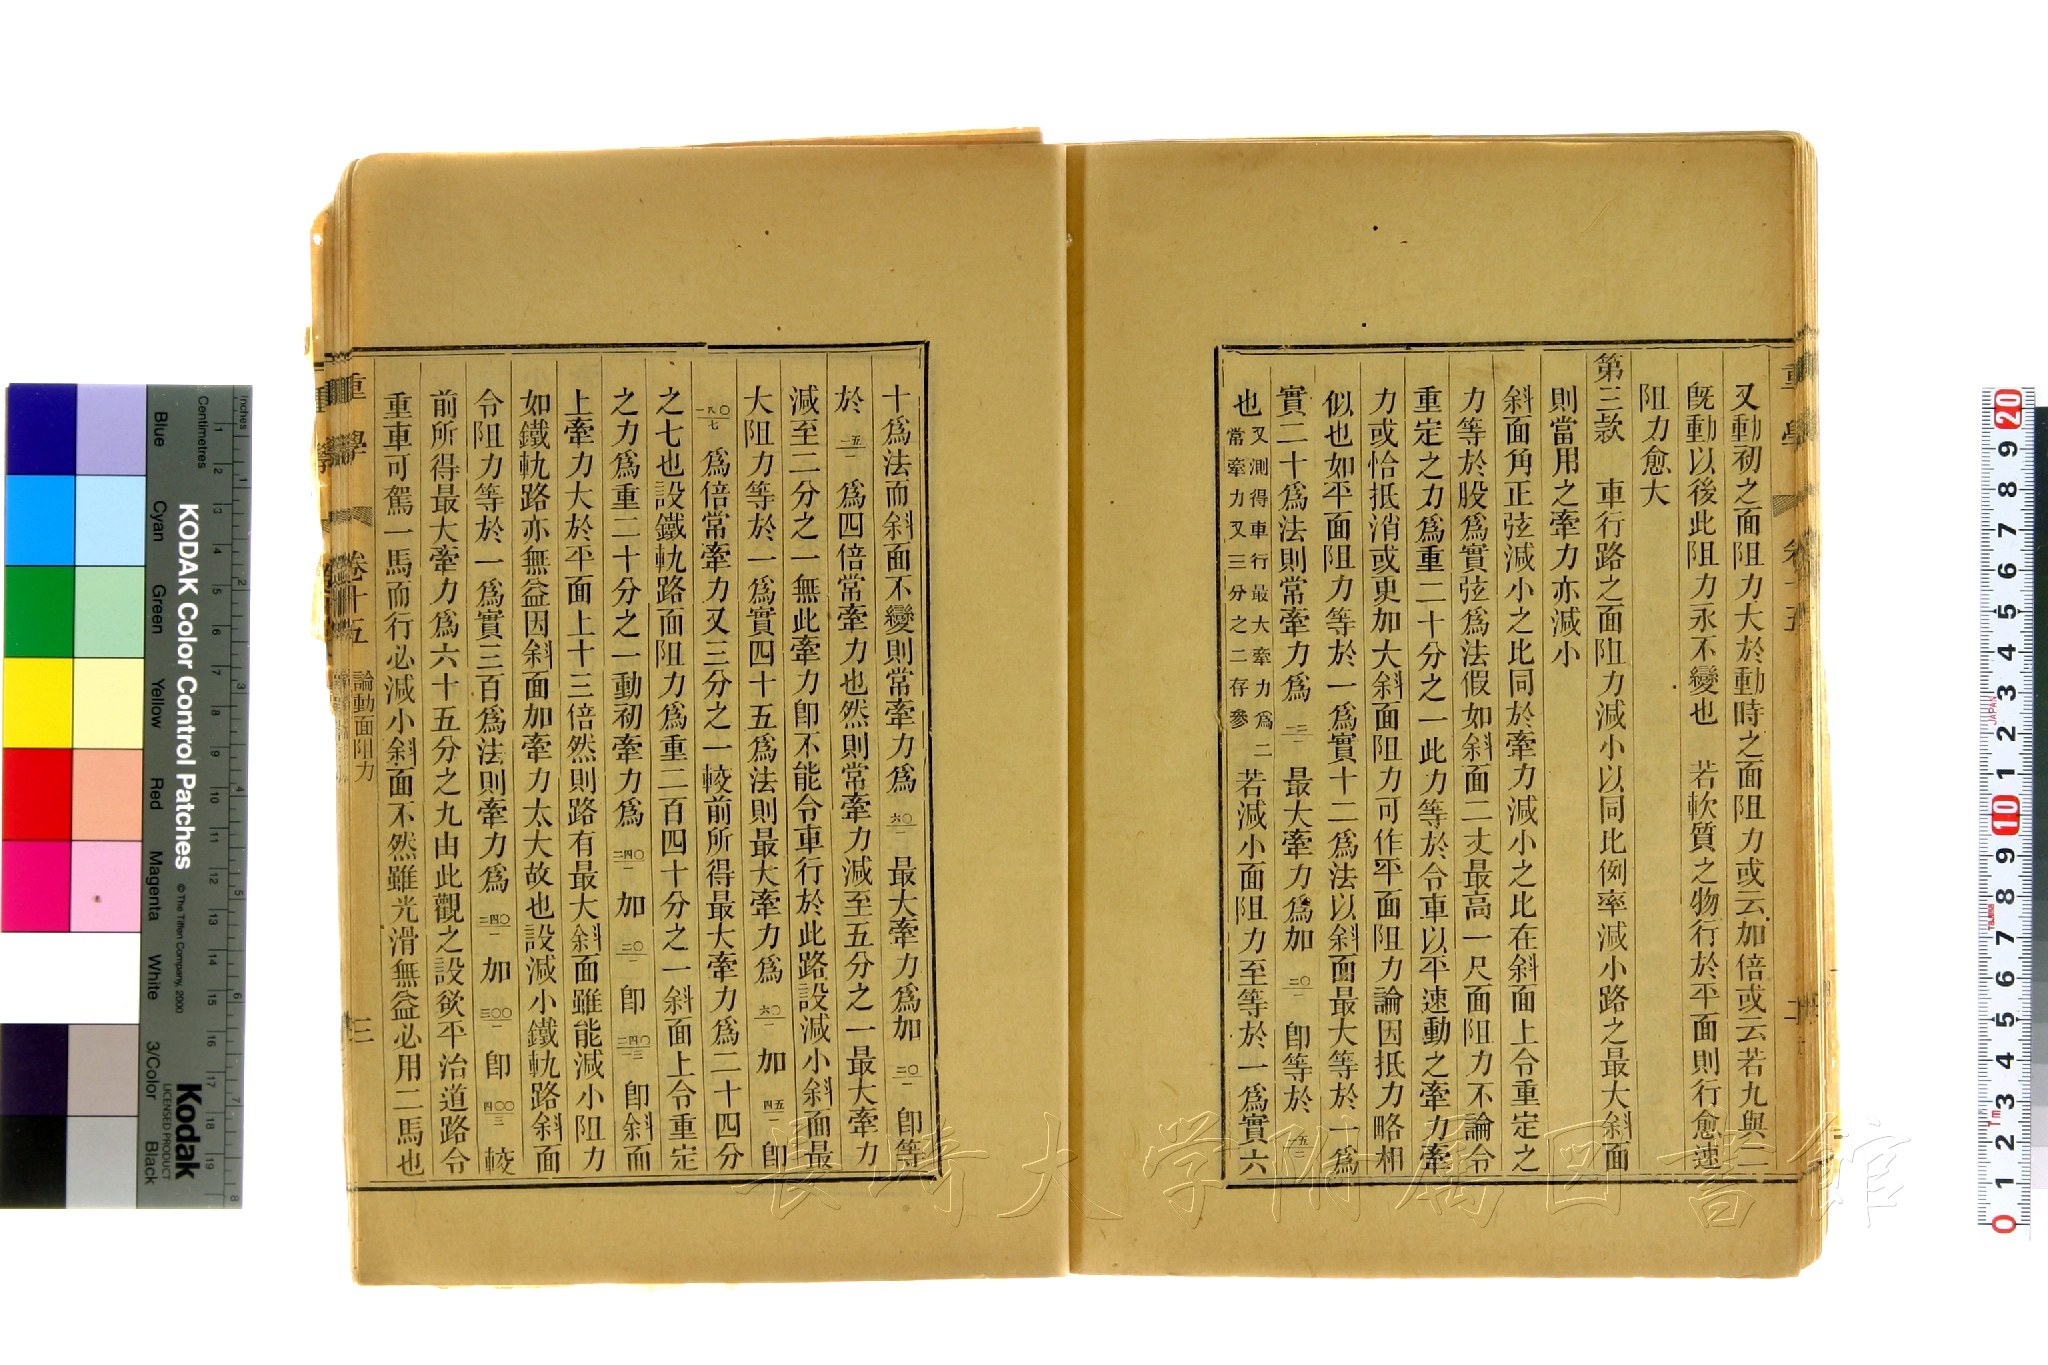 又動初之面阻力大於動時之面阻力或云加倍或云若九與二
旣動以後此阻力永不變也　若軟質之物行於平面則行愈速
阻力愈大
第三款　車行路之面阻力減小以同比例率減小路之最大斜面
則當用之牽力亦減小
斜面角正弦減小之比同於牽力減小之比在斜面上令重定之
力等於股爲實弦爲法假如斜面二丈最高一尺面阻力不論令
重定之力爲重二十分之一此力等於令車以平速動之牽力牽
力或恰抵消或更加大斜面阻力可作平面阻力論因抵力略相
似也如平面阻力等於一爲實十二爲法以斜面最大等於一爲
實二十爲法則常牽力爲 一二 最大牽力爲加 二〇一 卽等於 一五二
也 又測得車行最大牽力爲二常牽力又三分之二存參 若減小面阻力至等於一爲實六
十爲法而斜面不變則常牽力爲 六〇一 最大牽力爲加 二〇一 卽等
於 一五一 爲四倍常牽力也然則常牽力減至五分之一最大牽力
減至二分之一無此牽力卽不能令車行於此路設減小斜面最
大阻力等於一爲實四十五爲法則最大牽力爲 六〇一 加 四五一 卽
一八〇七 爲倍常牽力又三分之一較前所得最大牽力爲二十四分
之七也設鐵軌路面阻力爲重二百四十分之一斜面上令重定
之力爲重二十分之一動初牽力爲 二四〇一 加 二〇一 卽 二四〇一三 卽斜面
上牽力大於平面上十三倍然則路有最大斜面雖能減小阻力
如鐵軌路亦無益因斜面加牽力太大故也設減小鐵軌路斜面
令阻力等於一爲實三百爲法則牽力爲 二四〇一 加 三〇〇一 卽 四〇〇三 較
前所得最大牽力爲六十五分之九由此觀之設欲平治道路令
重車可駕一馬而行必減小斜面不然雖光滑無益必用二馬也
重學
卷十五
論動面阻力
三
KODAK Color Control Patches
© The Tiffen Company, 2000
Kodak
LICENSED PRODUCT
Inches
Centimetres
Blue
Cyan
Green
Yellow
Red
Magenta
White
3/Color
Black
長崎大学附属図書館